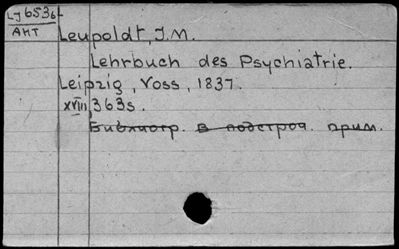 Lj 6536
АНТ
Leupoldt, J.M.
Lehrbuch des Psychiatrie.
Leipzig, Voss, 1837.
XVIII, 363s.
Библиогр. в подстроч. прим.